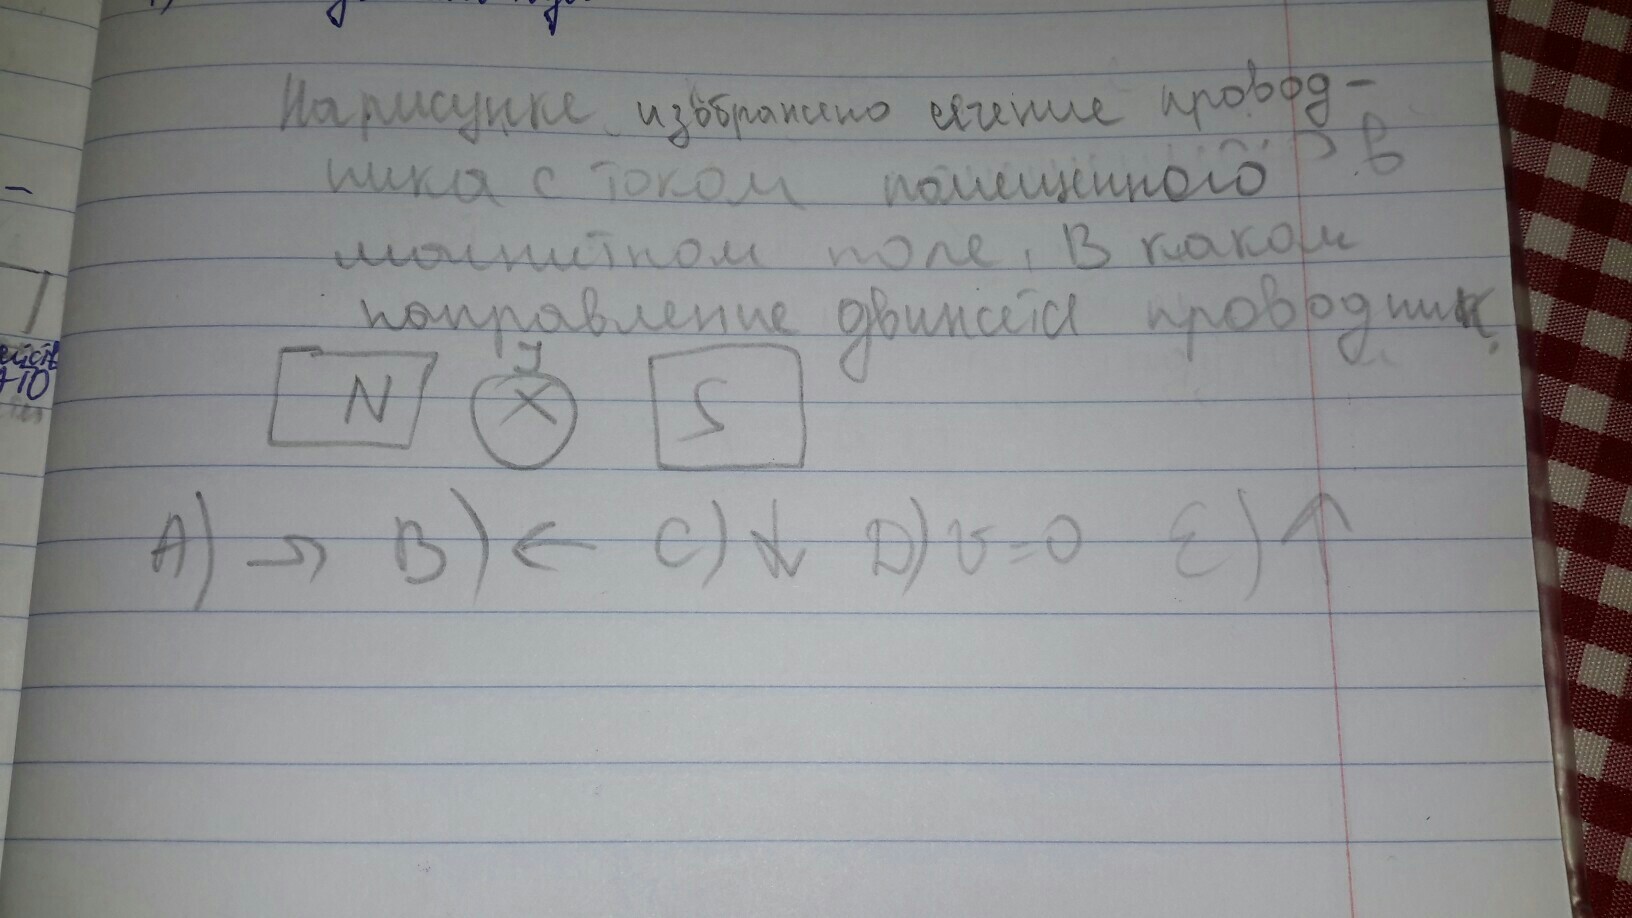 На рисунке изображено сечение провод-
ника с током помещенного в
магнитном поле. В каком
направление движется проводник.
N J X S
A) → B) ← C) ↓ D) v=0 E) ↑
+10